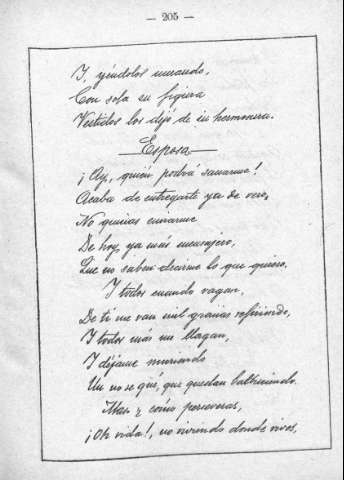 — 205 —
I, yéndolos mirando,
Con sola su figura
Vestidos los dejó de su hermosura.
Esposa
¡Ay, quién podrá sanarme!
Acaba de entregarte ya de vero,
No quieras enviarme
De hoy ya más mensajero,
Que no saben decirme lo que quiero.
I todos cuando vagan,
De ti me van mil gracias refiriendo,
I todos más me llagan,
I déjame muriendo
Un no se qué, que quedan balbuciendo.
Mas ¿cómo perseveras,
¡Oh vida!, no viviendo donde vives,